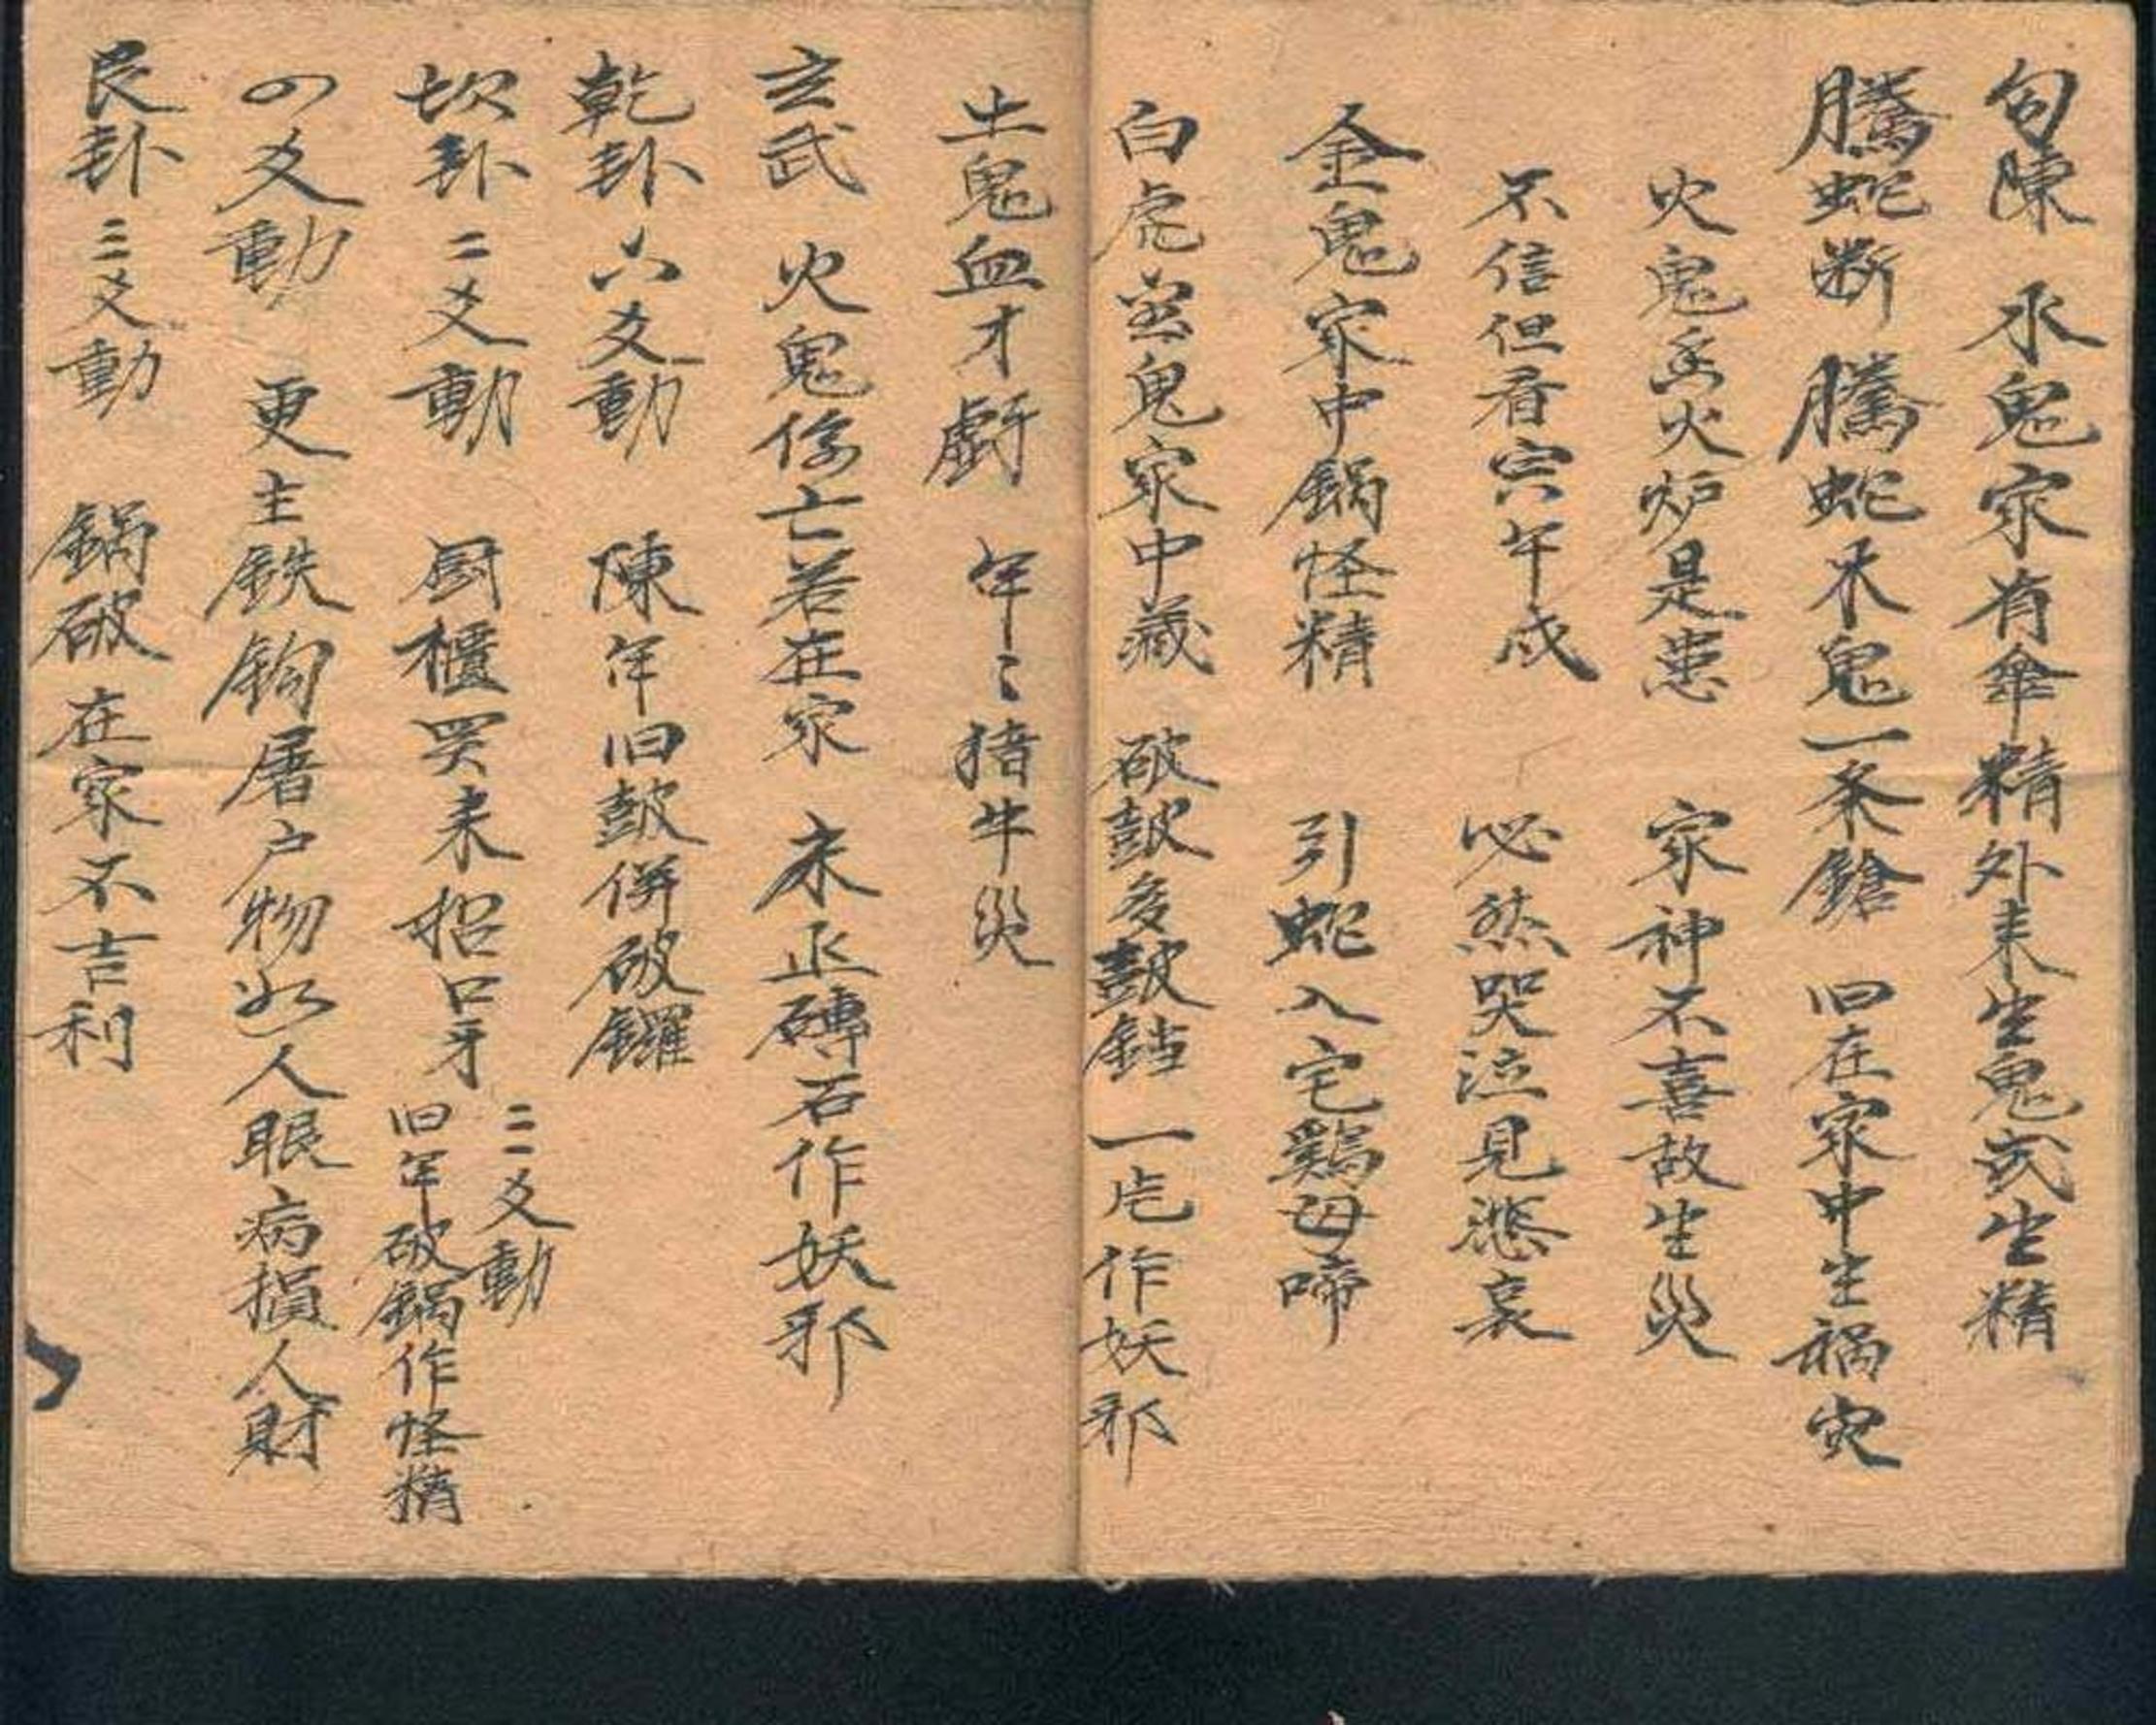 勾陳　水鬼家有傘精外来生鬼或生精
騰蛇断　騰蛇木鬼一条鎗　旧在家中生禍灾
火鬼火炉是患　家神不喜故生災
不信但看午戌　必然哭泣見悲哀
金鬼家中鍋怪精　引蛇入宅鷄母啼
白虎鬼家中藏　破鼓多鼓　一作妖邪
土鬼血才　年〻猪牛災
玄武　火鬼亡若在家　磚石作妖邪
乾卦六爻動　陳年旧鼓併破鑼
坎卦二爻動　厨櫃哭来招口牙
三爻動
旧年破鍋作怪精
四爻動　更主鉄鈎屠户物　人眼病損人財
艮卦三爻動　鍋破在家不吉利